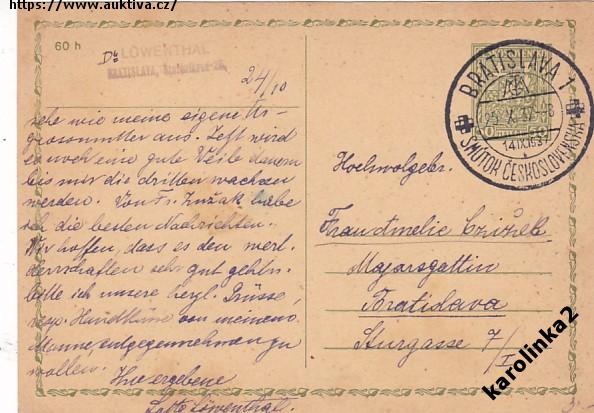 https://www.auktiva.cz/
60 h
Dr LÖWENTHAL
BRATISLAVA,
24/10
sehe wie meine eigene Ur-
grossmutter aus. Jetzt wird
es noch eine gute Weile dauern
bis mir die dritten wachsen
werden. Von Fr. habe
ich die besten Nachrichten.
Wir hoffen, dass es den wert.
sehr gut geht u.
bitte ich unsere herzl. Grüsse,
resp. Handküsse von meinem
Manne, entgegennehmen zu
wollen. Ihre ergebene
Löwenthal.
BRATISLAVA 1
25.X.37
14.IX.1937
SMÚTOK ČESKOSLOVENSKA
Hochwolgebr.
Frau Czižek
Majorsgattin
Bratislava
Sturgasse 7/I
karolinka2